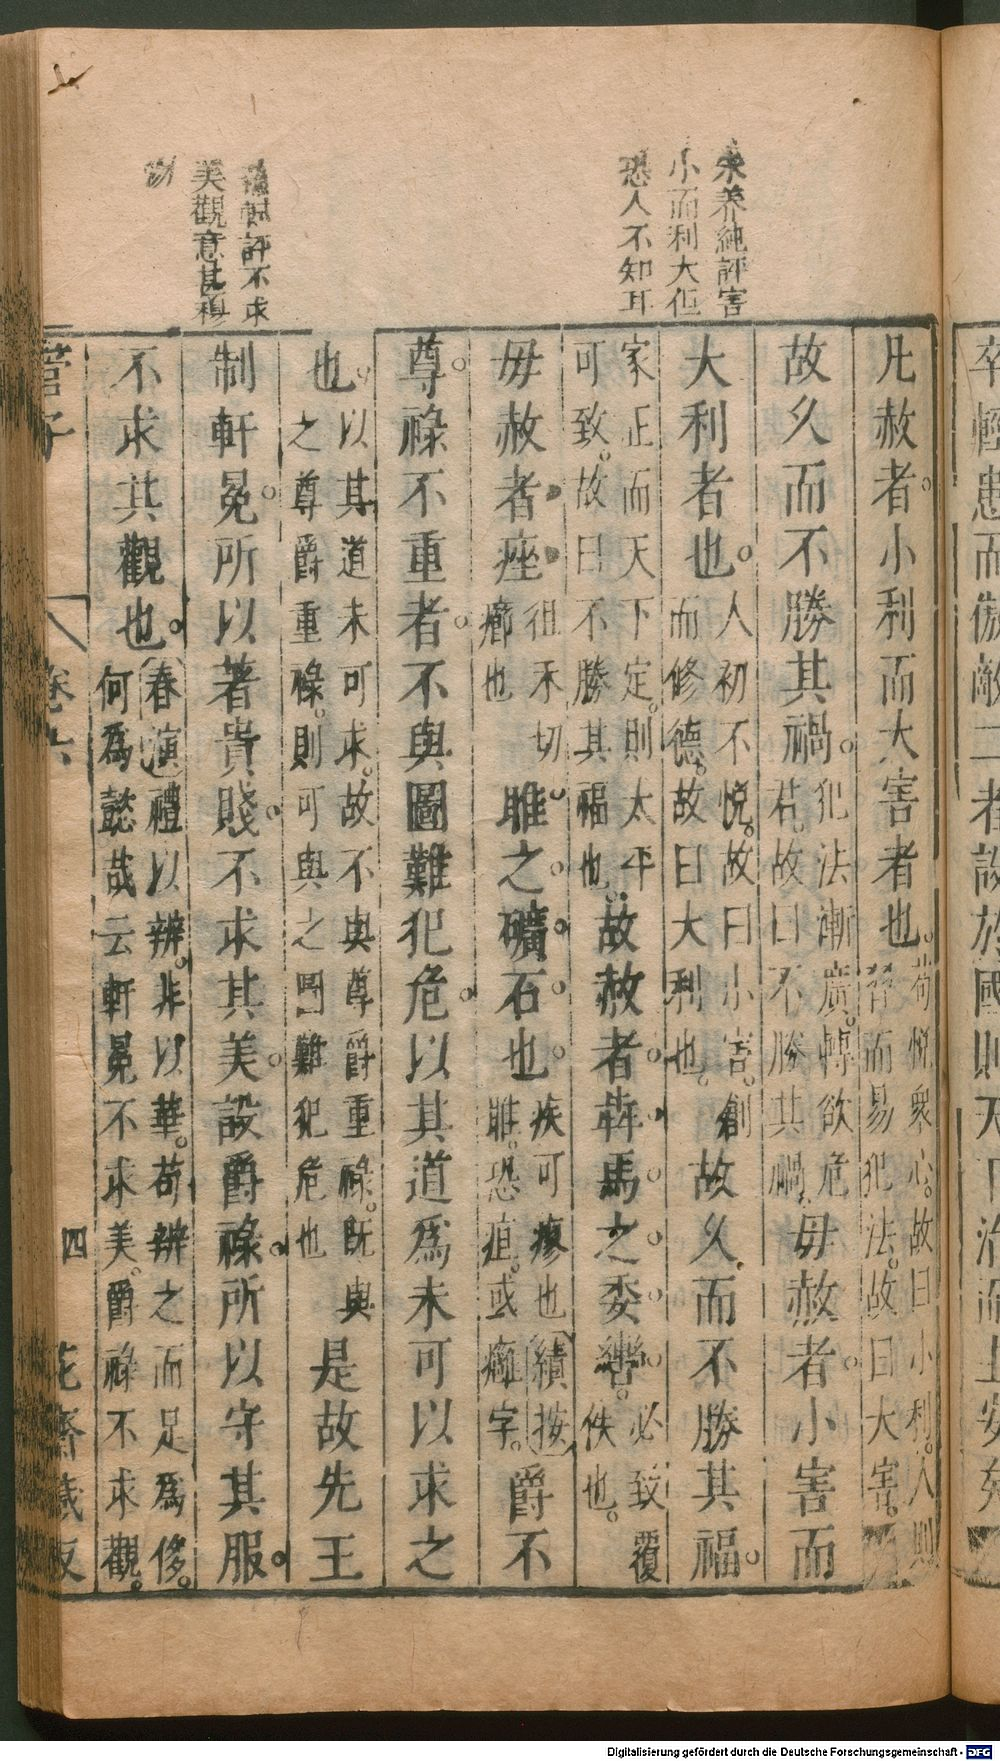 朱養純評害
小而利大但
恐人不知耳
評不求
美觀意甚
卒輕患而傲敵二者設於國則天下治而主安矣
凡赦者小利而大害者也苟悅衆心故曰小利人則
習而易犯法故曰大害
故久而不勝其禍犯法漸廣轉欲危
君故曰不勝其禍毋赦者小害而
大利者也人初不悅故曰小害創
而修德故曰大利也故久而不勝其福
家正而天下定則太平
可致故曰不勝其福也故赦者犇馬之委轡必致覆
佚也
毋赦者痤徂禾切
癤也雎之礦石也疾可瘳也績按
雎恐疽或癰字爵不
尊祿不重者不與圖難犯危以其道爲未可以求之
也以其道未可求故不與尊爵重祿旣與
之尊爵重祿則可與之圖難犯危也是故先王
制軒冕所以著貴賤不求其美設爵祿所以守其服
不求其觀也春演禮以辨非以華苟辨之而足爲侈
何爲懿哉云軒冕不求美爵祿不求觀
管子 卷 四 花齋藏板
Digitalisierung gefördert durch die Deutsche Forschungsgemeinschaft - DFG